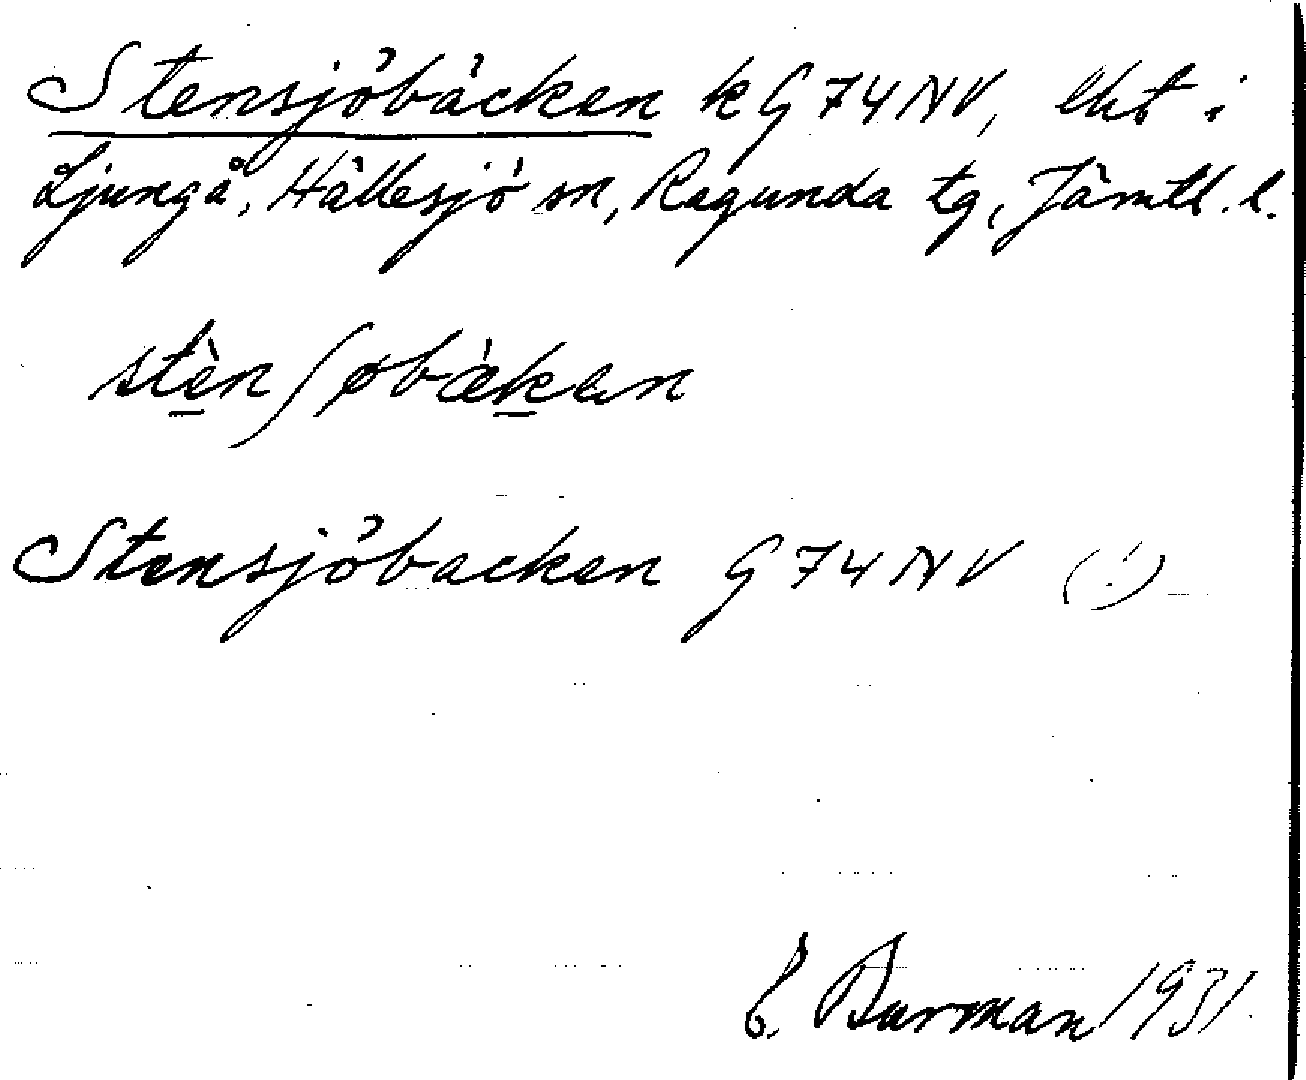 Stensjöbäcken k G 74 NV, ekt i
Ljungå, Hällesjö sn, Ragunda tg, Jämtl. l.
stèn ʃøbækan
Stensjöbacken G 74 NV (!)
E. Burman 1931.